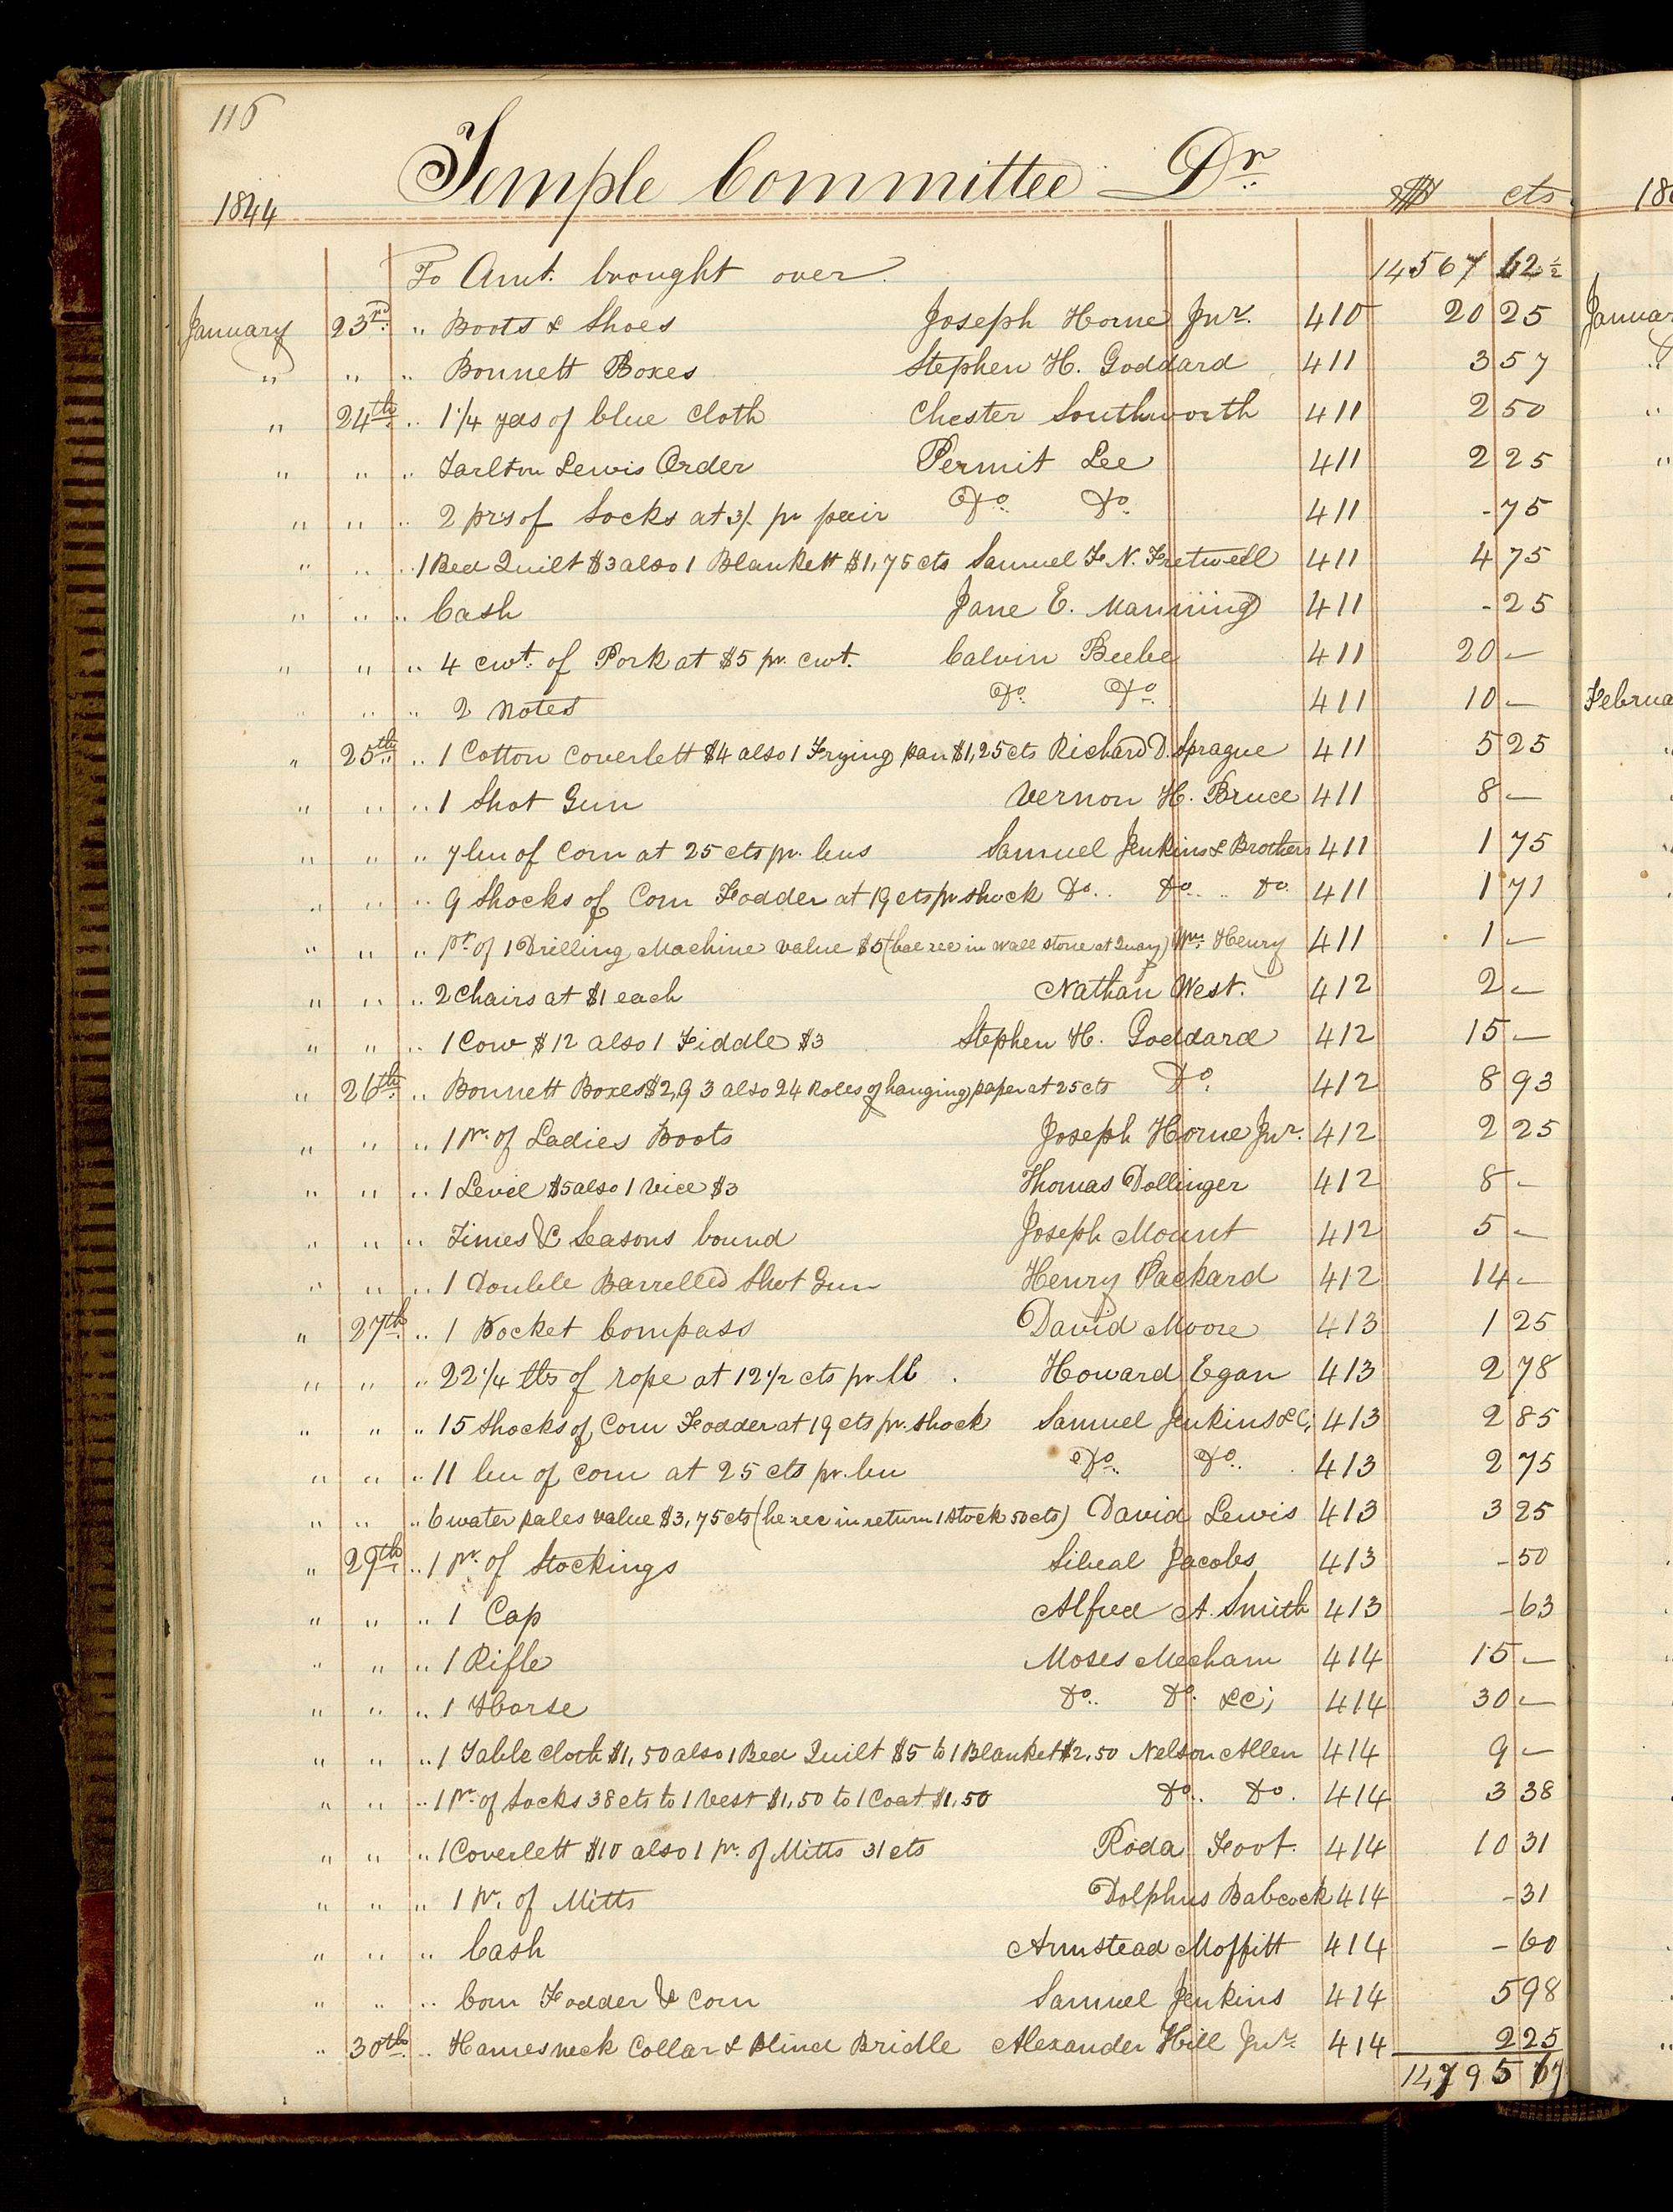 116
Temple Committee Dr
1844 $ cts
To Amt. brought over. 14567 62½
January 23rd " Boots & Shoes Joseph Horne Jnr. 410 20 25
" " " Bonnett Boxes Stephen H. Goddard 411 3 57
" 24th " 1 1/4 yds of blue Cloth Chester Southworth 411 2 50
" " " Tarlton Lewis Order Permit Lee 411 2 25
" " " 2 prs of Socks at 3/- pr pair Do Do 411 - 75
" " " 1 Bed Quilt $3 also 1 Blankett $1,75 cts Samuel F. N. Fretwell 411 4 75
" " " Cash Jane E. Manning 411 - 25
" " " 4 cwt. of Pork at $5 pr. cwt. Calvin Beebe 411 20 —
" " " 2 Notes Do Do 411 10 —
" 25th " 1 Cotton Coverlett $4 also 1 Frying pan $1,25 cts Richard D. Sprague 411 5 25
" " " 1 Shot Gun Vernon H. Bruce 411 8 —
" " " 7 bu of Corn at 25 cts pr. bus Samuel Jenkins & Brothers 411 1 75
" " " 9 Shocks of Corn Fodder at 19 cts pr shock Do. Do. Do. 411 1 71
" " " pt. of 1 Drilling Machine value $5 (bal rec in wall stone at Quay) Wm. Henry 411 1 —
" " " 2 Chairs at $1 each Nathan West. 412 2 —
" " " 1 Cow $12 also 1 Fiddle $3 Stephen H. Goddard 412 15 —
" 26th " Bonnett Boxes $2,93 also 24 Roles of hanging paper at 25 cts Do. 412 8 93
" " " 1 Pr. of Ladies Boots Joseph Horne Jnr. 412 2 25
" " " 1 Level $5 also 1 Vice $3 Thomas Dollinger 412 8 -
" " " Times & Seasons bound Joseph Mount 412 5 —
" " " 1 Double Barrelled Shot Gun Henry Packard 412 14 —
" 27th " 1 Pocket Compass David Moore 413 1 25
" " " 22 1/4 lbs of rope at 12 1/2 cts pr. lb. Howard Egan 413 2 78
" " " 15 Shocks of Corn Fodder at 19 cts pr. shock Samuel Jenkins &C, 413 2 85
" " " 11 bu of Corn at 25 cts pr. bu Do. Do. 413 2 75
" " " 6 water pales value $3,75 cts (he rec in return 1 Stock 50 cts) David Lewis 413 3 25
" 29th " 1 pr. of Stockings Sibeal Jacobs 413 - 50
" " " 1 Cap Alfred A. Smith 413 - 63
" " " 1 Rifle Moses Mecham 414 15 —
" " " 1 Horse Do. Do. &C; 414 30 —
" " " 1 Table cloth $1,50 also 1 Bed Quilt $5 to 1 Blanket $2,50 Nelson Allen 414 9 —
" " " 1 Pr. of Socks 38 cts to 1 Vest $1,50 to 1 Coat $1,50 Do. Do. 414 3 38
" " " 1 Coverlett $10 also 1 pr. of Mitts 31 cts Roda Foot. 414 10 31
" " " 1 Pr. of Mitts Dolphus Babcock 414 - 31
" " " Cash Armstead Moffitt 414 - 60
" " " Corn Fodder & Corn Samuel Jenkins 414 5 98
" 30th " Hames neck Collar & Blind Bridle Alexander Hill Jnr. 414 2 25
14795 67